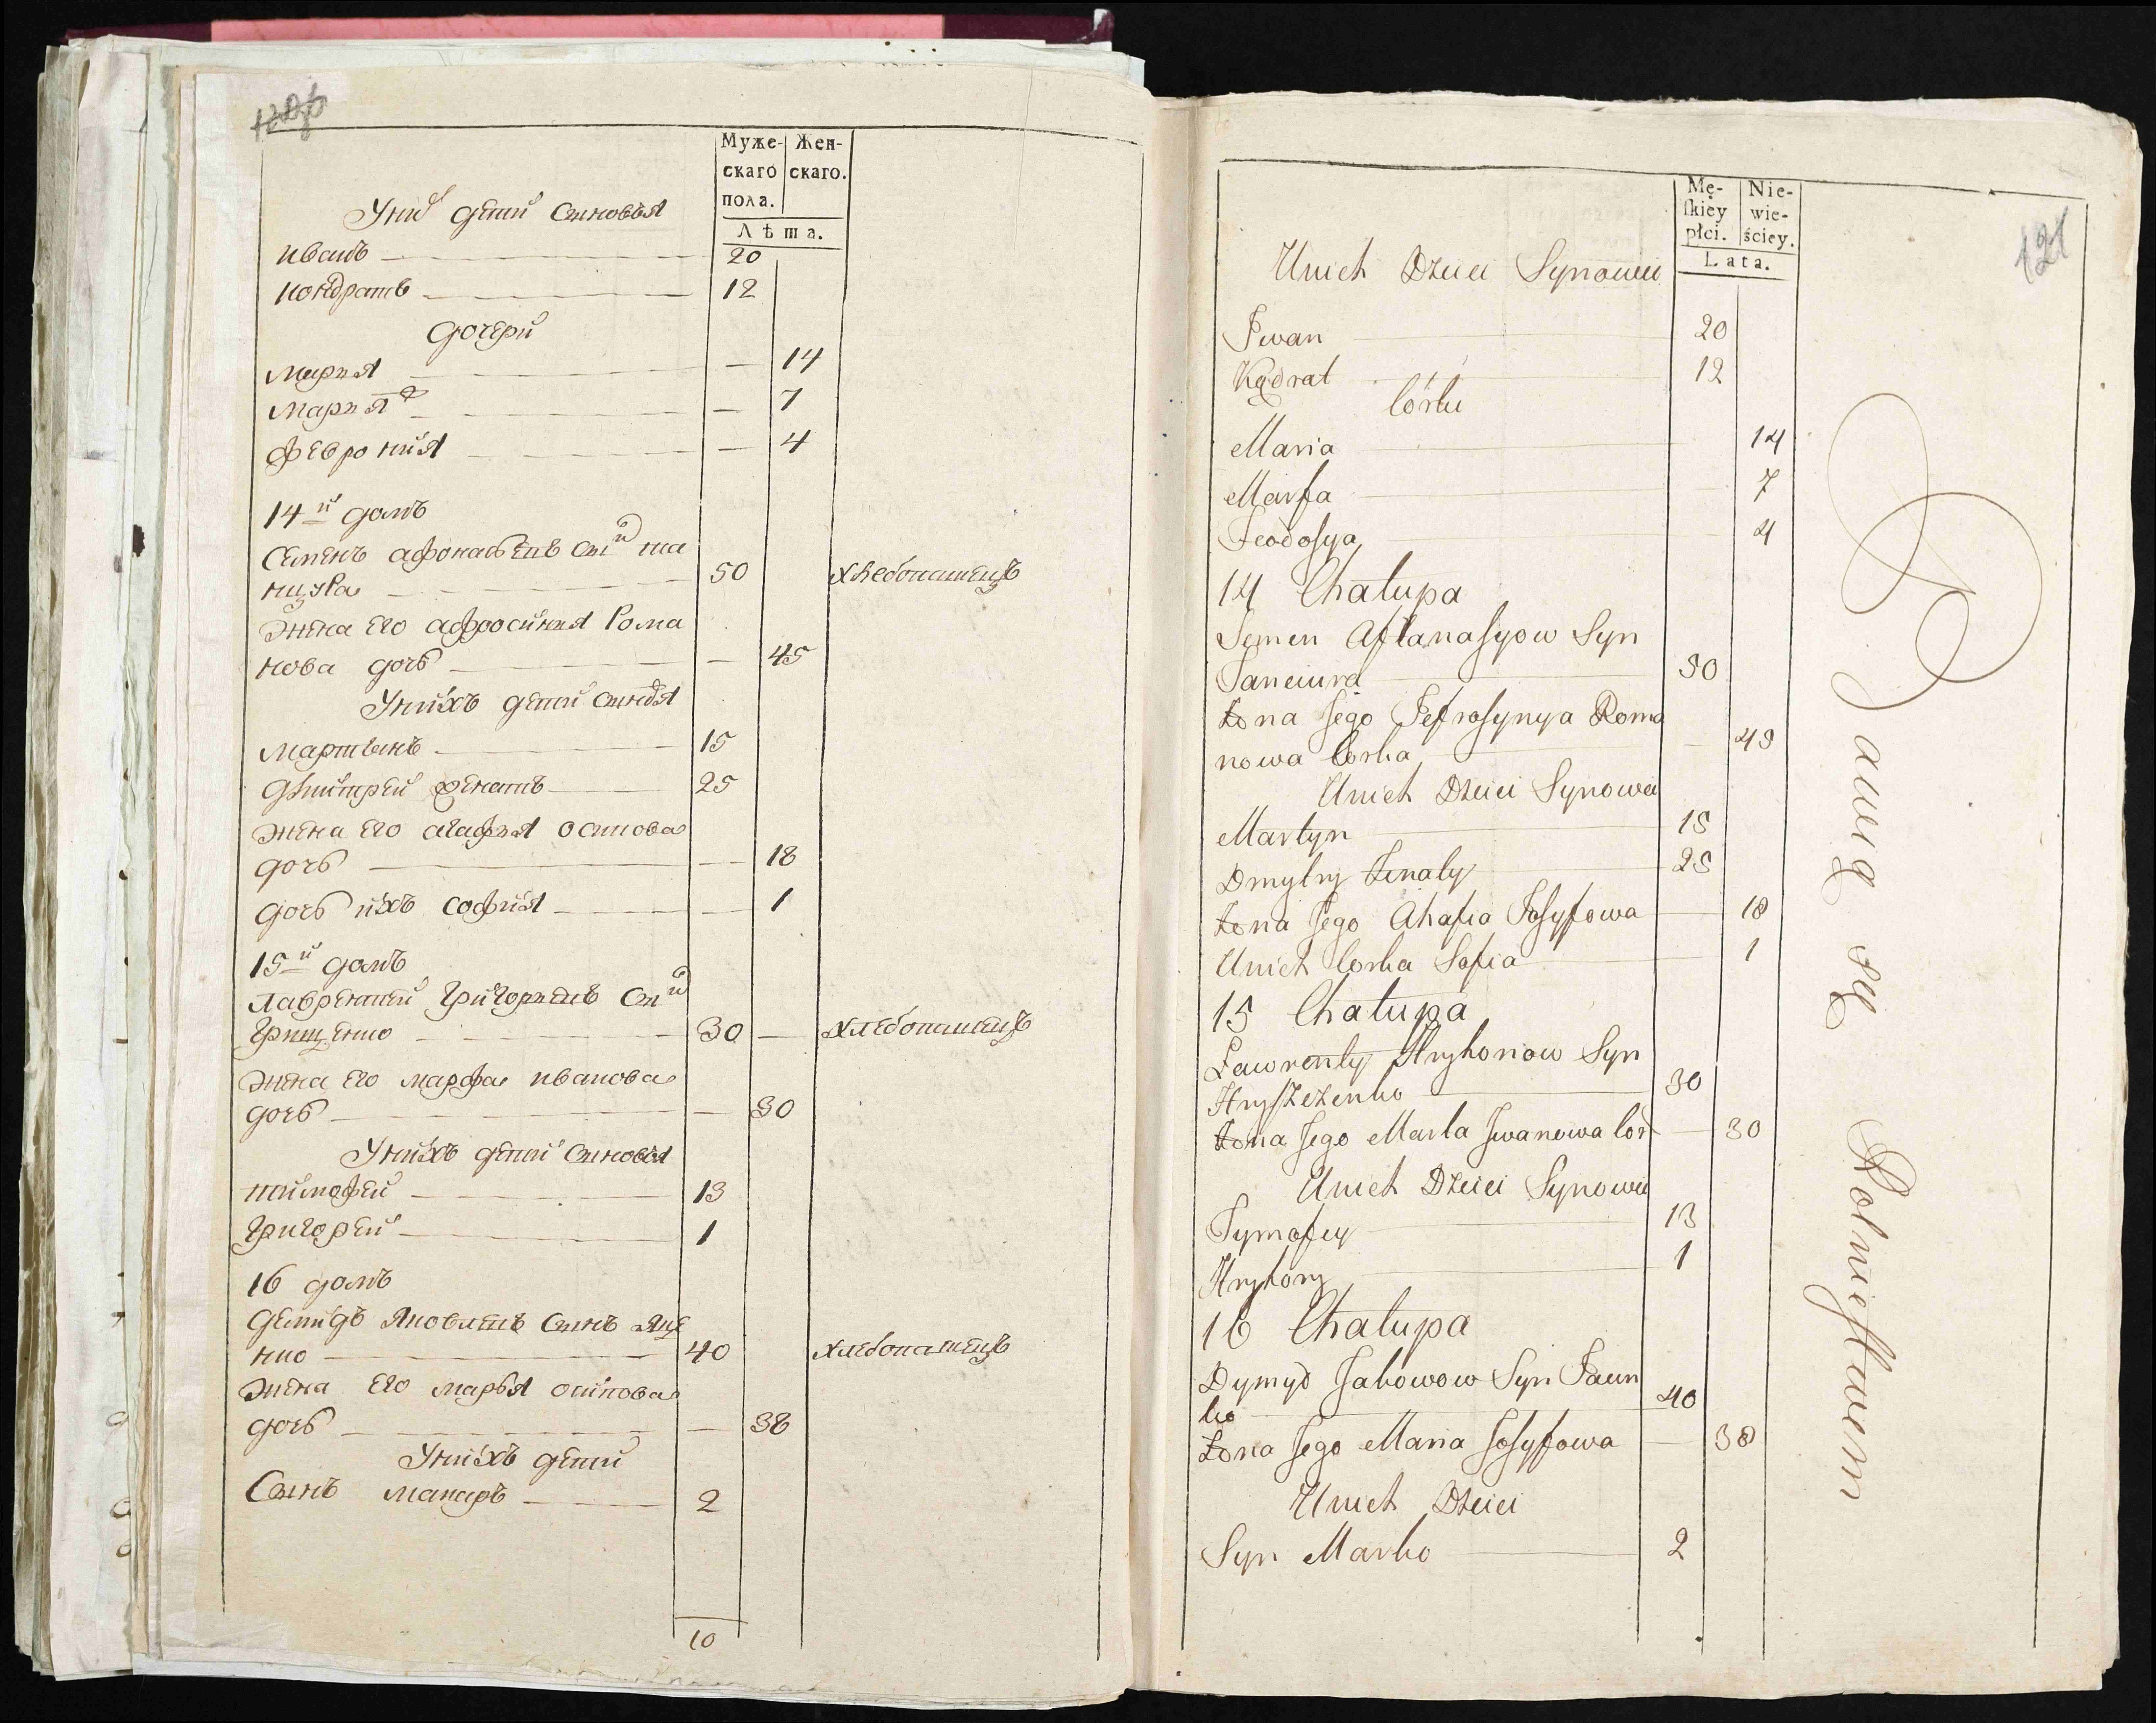 Муже- Жен-
скаго скаго.
пола.
Лѣта.
У них дети Сыновья
иванъ 20
кондратъ 12
дочери
мария — 14
мария 2 — 7
феврония — 4
14й домъ
Семенъ афонасьевъ сн
50 хлебопашецъ
жена его афросиния Рома
нова дочь — 45
У нихъ дети сыновья
мартынъ 15
дмитрей женатъ 25
жена его агафия осипова
дочь — 18
дочь ихъ софия — 1
15й домъ
лаврентей григориевъ сн
грищенко 30 — хлебопашецъ
жена его марфа иванова
дочь — 30
У нихъ дети сыновья
тимофей 13
григорей 1
16 домъ
демидъ яковлевъ сынъ яце
нко 40 хлебопашецъ
жена его марья осипова
дочь — 38
У нихъ дети
Сынъ макаръ 2
10
121
Mę- Nie-
skiey wie-
płci. ściey.
Lata.
U nich Dzieci Synowie
Iwan 20
Kądrat 12
Córki
Maria 14
Marfa 7
Feodosya 4
14 Chałupa
Semen Aftanasyow Syn
50
żona Jego Jefrosynya Roma
nowa Corka — 45
U nich Dzieci Synowie
Martyn 15
Dmytry żonaty 25
żona Jego Ahafia Josyfowa — 18
U nich Corka Sofia — 1
15 Chałupa
Ławrenty Hryhoriow Syn
Hryszczenko 30
żona Jego Marta Iwanowa Cor — 30
U nich Dzieci Synowie
Tymofey 13
Hryhory 1
16 Chałupa
Dymyd Jakowow Syn
ko 40
żona Jego Maria Josyfowa — 38
U nich Dzieci
Syn Marko 2
Bawią się Rolnictwem